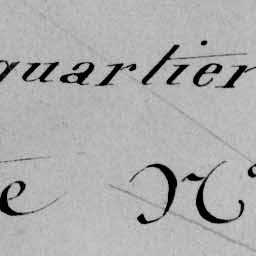 quartier
e N°